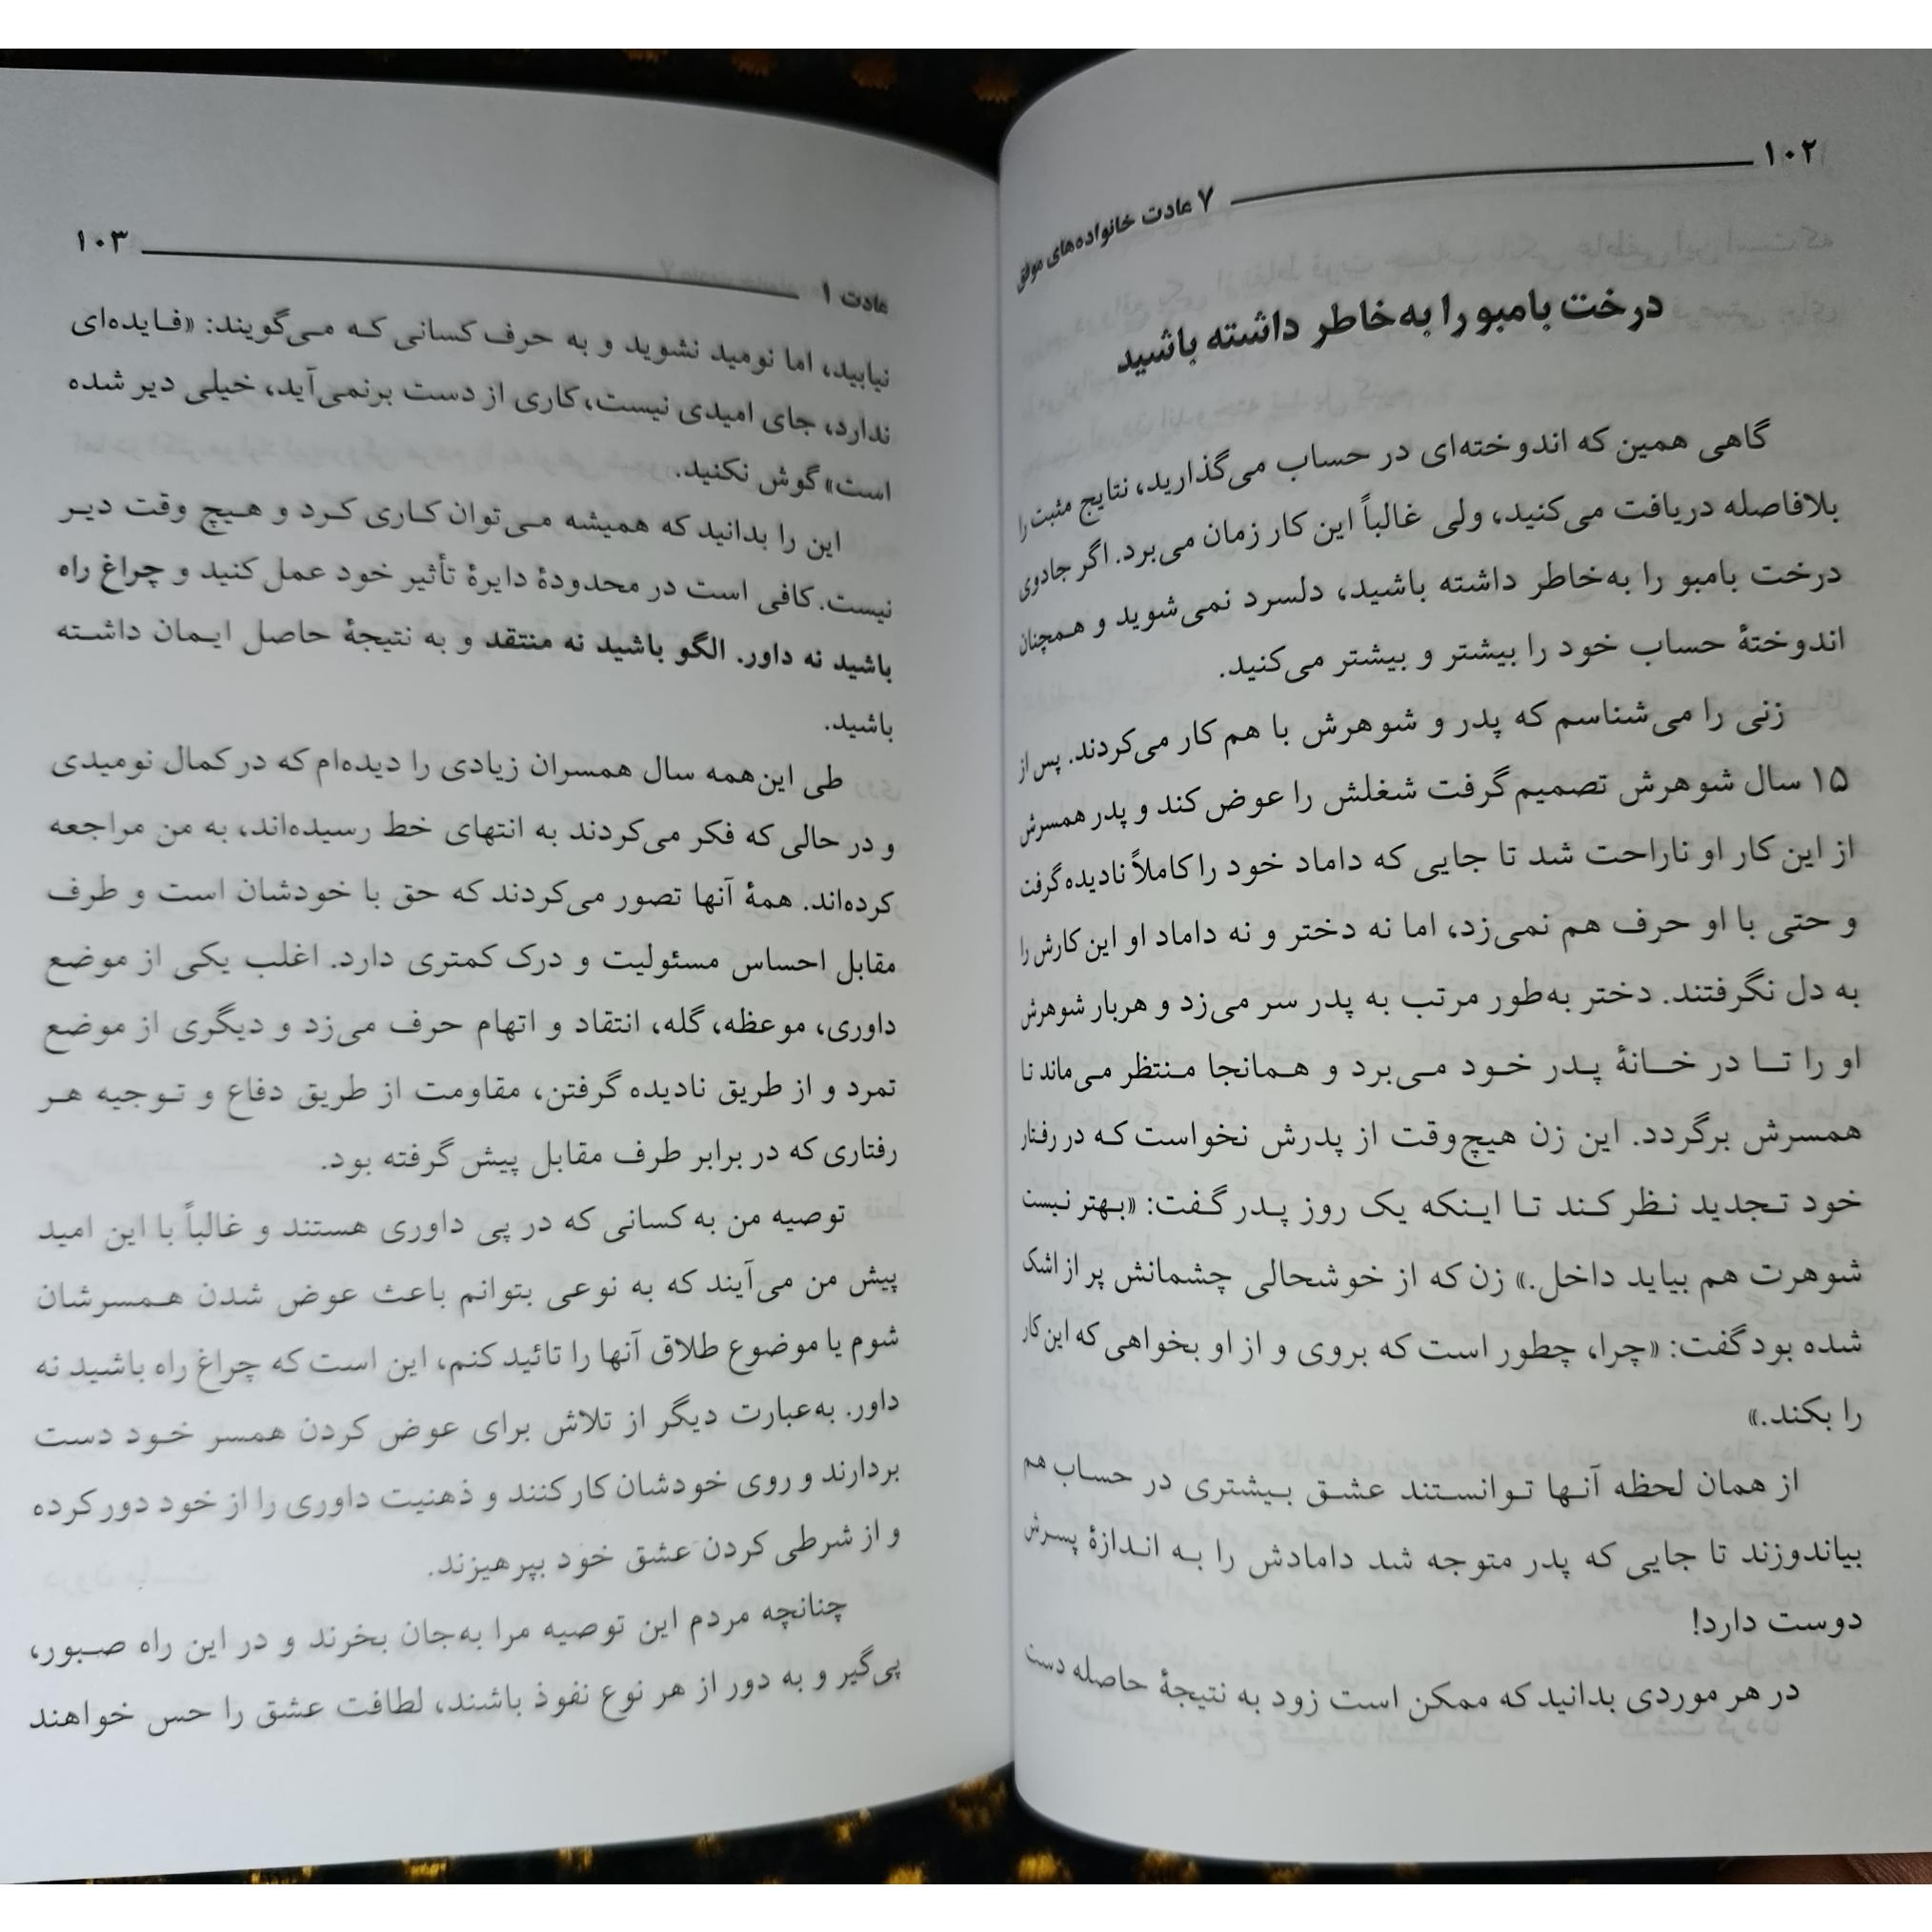 ۱۰۲
۷ عادت خانواده‌های موفق
درخت بامبو را به‌خاطر داشته باشید
گاهی همین که اندوخته‌ای در حساب می‌گذارید، نتایج مثبت را
بلافاصله دریافت می‌کنید، ولی غالباً این کار زمان می‌برد. اگر جادوی
درخت بامبو را به‌خاطر داشته باشید، دلسرد نمی‌شوید و همچنان
اندوختهٔ حساب خود را بیشتر و بیشتر می‌کنید.
زنی را می‌شناسم که پدر و شوهرش با هم کار می‌کردند. پس از
۱۵ سال شوهرش تصمیم گرفت شغلش را عوض کند و پدر همسرش
از این کار او ناراحت شد تا جایی که داماد خود را کاملاً نادیده گرفت
و حتی با او حرف هم نمی‌زد، اما نه دختر و نه داماد او این کارش را
به دل نگرفتند. دختر به‌طور مرتب به پدر سر می‌زد و هربار شوهرش
او را تا در خانهٔ پدر خود می‌برد و همانجا منتظر می‌ماند تا
همسرش برگردد. این زن هیچ‌وقت از پدرش نخواست که در رفتار
خود تجدید نظر کند تا اینکه یک روز پدر گفت: «بهتر نیست
شوهرت هم بیاید داخل.» زن که از خوشحالی چشمانش پر از اشک
شده بود گفت: «چرا، چطور است که بروی و از او بخواهی که این کار
را بکند.»
از همان لحظه آنها توانستند عشق بیشتری در حساب هم
بیاندوزند تا جایی که پدر متوجه شد دامادش را به اندازهٔ پسرش
دوست دارد!
در هر موردی بدانید که ممکن است زود به نتیجهٔ حاصله دست
عادت ۱
۱۰۳
نیابید، اما نومید نشوید و به حرف کسانی که می‌گویند: «فایده‌ای
ندارد، جای امیدی نیست، کاری از دست برنمی‌آید، خیلی دیر شده
است» گوش نکنید.
این را بدانید که همیشه می‌توان کاری کرد و هیچ وقت دیر
نیست. کافی است در محدودهٔ دایرهٔ تأثیر خود عمل کنید و چراغ راه
باشید نه داور. الگو باشید نه منتقد و به نتیجهٔ حاصل ایمان داشته
باشید.
طی این‌همه سال همسران زیادی را دیده‌ام که در کمال نومیدی
و در حالی که فکر می‌کردند به انتهای خط رسیده‌اند، به من مراجعه
کرده‌اند. همهٔ آنها تصور می‌کردند که حق با خودشان است و طرف
مقابل احساس مسئولیت و درک کمتری دارد. اغلب یکی از موضع
داوری، موعظه، گله، انتقاد و اتهام حرف می‌زد و دیگری از موضع
تمرد و از طریق نادیده گرفتن، مقاومت از طریق دفاع و توجیه هر
رفتاری که در برابر طرف مقابل پیش گرفته بود.
توصیه من به کسانی که در پی داوری هستند و غالباً با این امید
پیش من می‌آیند که به نوعی بتوانم باعث عوض شدن همسرشان
شوم یا موضوع طلاق آنها را تائید کنم، این است که چراغ راه باشید نه
داور. به‌عبارت دیگر از تلاش برای عوض کردن همسر خود دست
بردارند و روی خودشان کار کنند و ذهنیت داوری را از خود دور کرده
و از شرطی کردن عشق خود بپرهیزند.
چنانچه مردم این توصیه مرا به‌جان بخرند و در این راه صبور،
پی‌گیر و به دور از هر نوع نفوذ باشند، لطافت عشق را حس خواهند